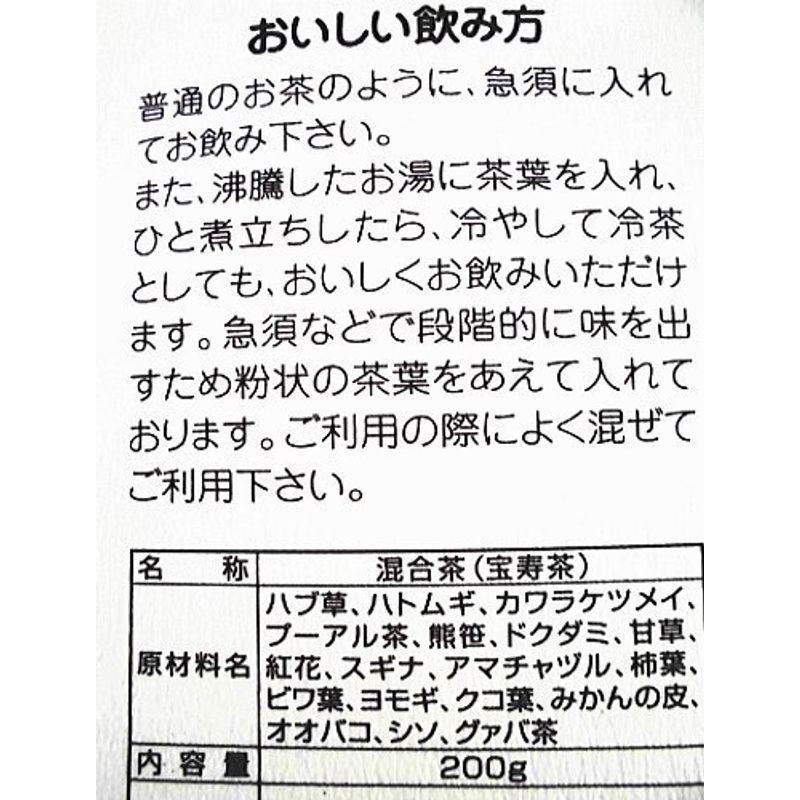 おいしい飲み方
普通のお茶のように、急須に入れ
てお飲み下さい。
また、沸騰したお湯に茶葉を入れ、
ひと煮立ちしたら、冷やして冷茶
としても、おいしくお飲みいただけ
ます。急須などで段階的に味を出
すため粉状の茶葉をあえて入れて
おります。ご利用の際によく混ぜて
ご利用下さい。
名称 混合茶(宝寿茶)
原材料名 ハブ草、ハトムギ、カワラケツメイ、
プーアル茶、熊笹、ドクダミ、甘草、
紅花、スギナ、アマチャヅル、柿葉、
ビワ葉、ヨモギ、クコ葉、みかんの皮、
オオバコ、シソ、グァバ茶
内容量 200g